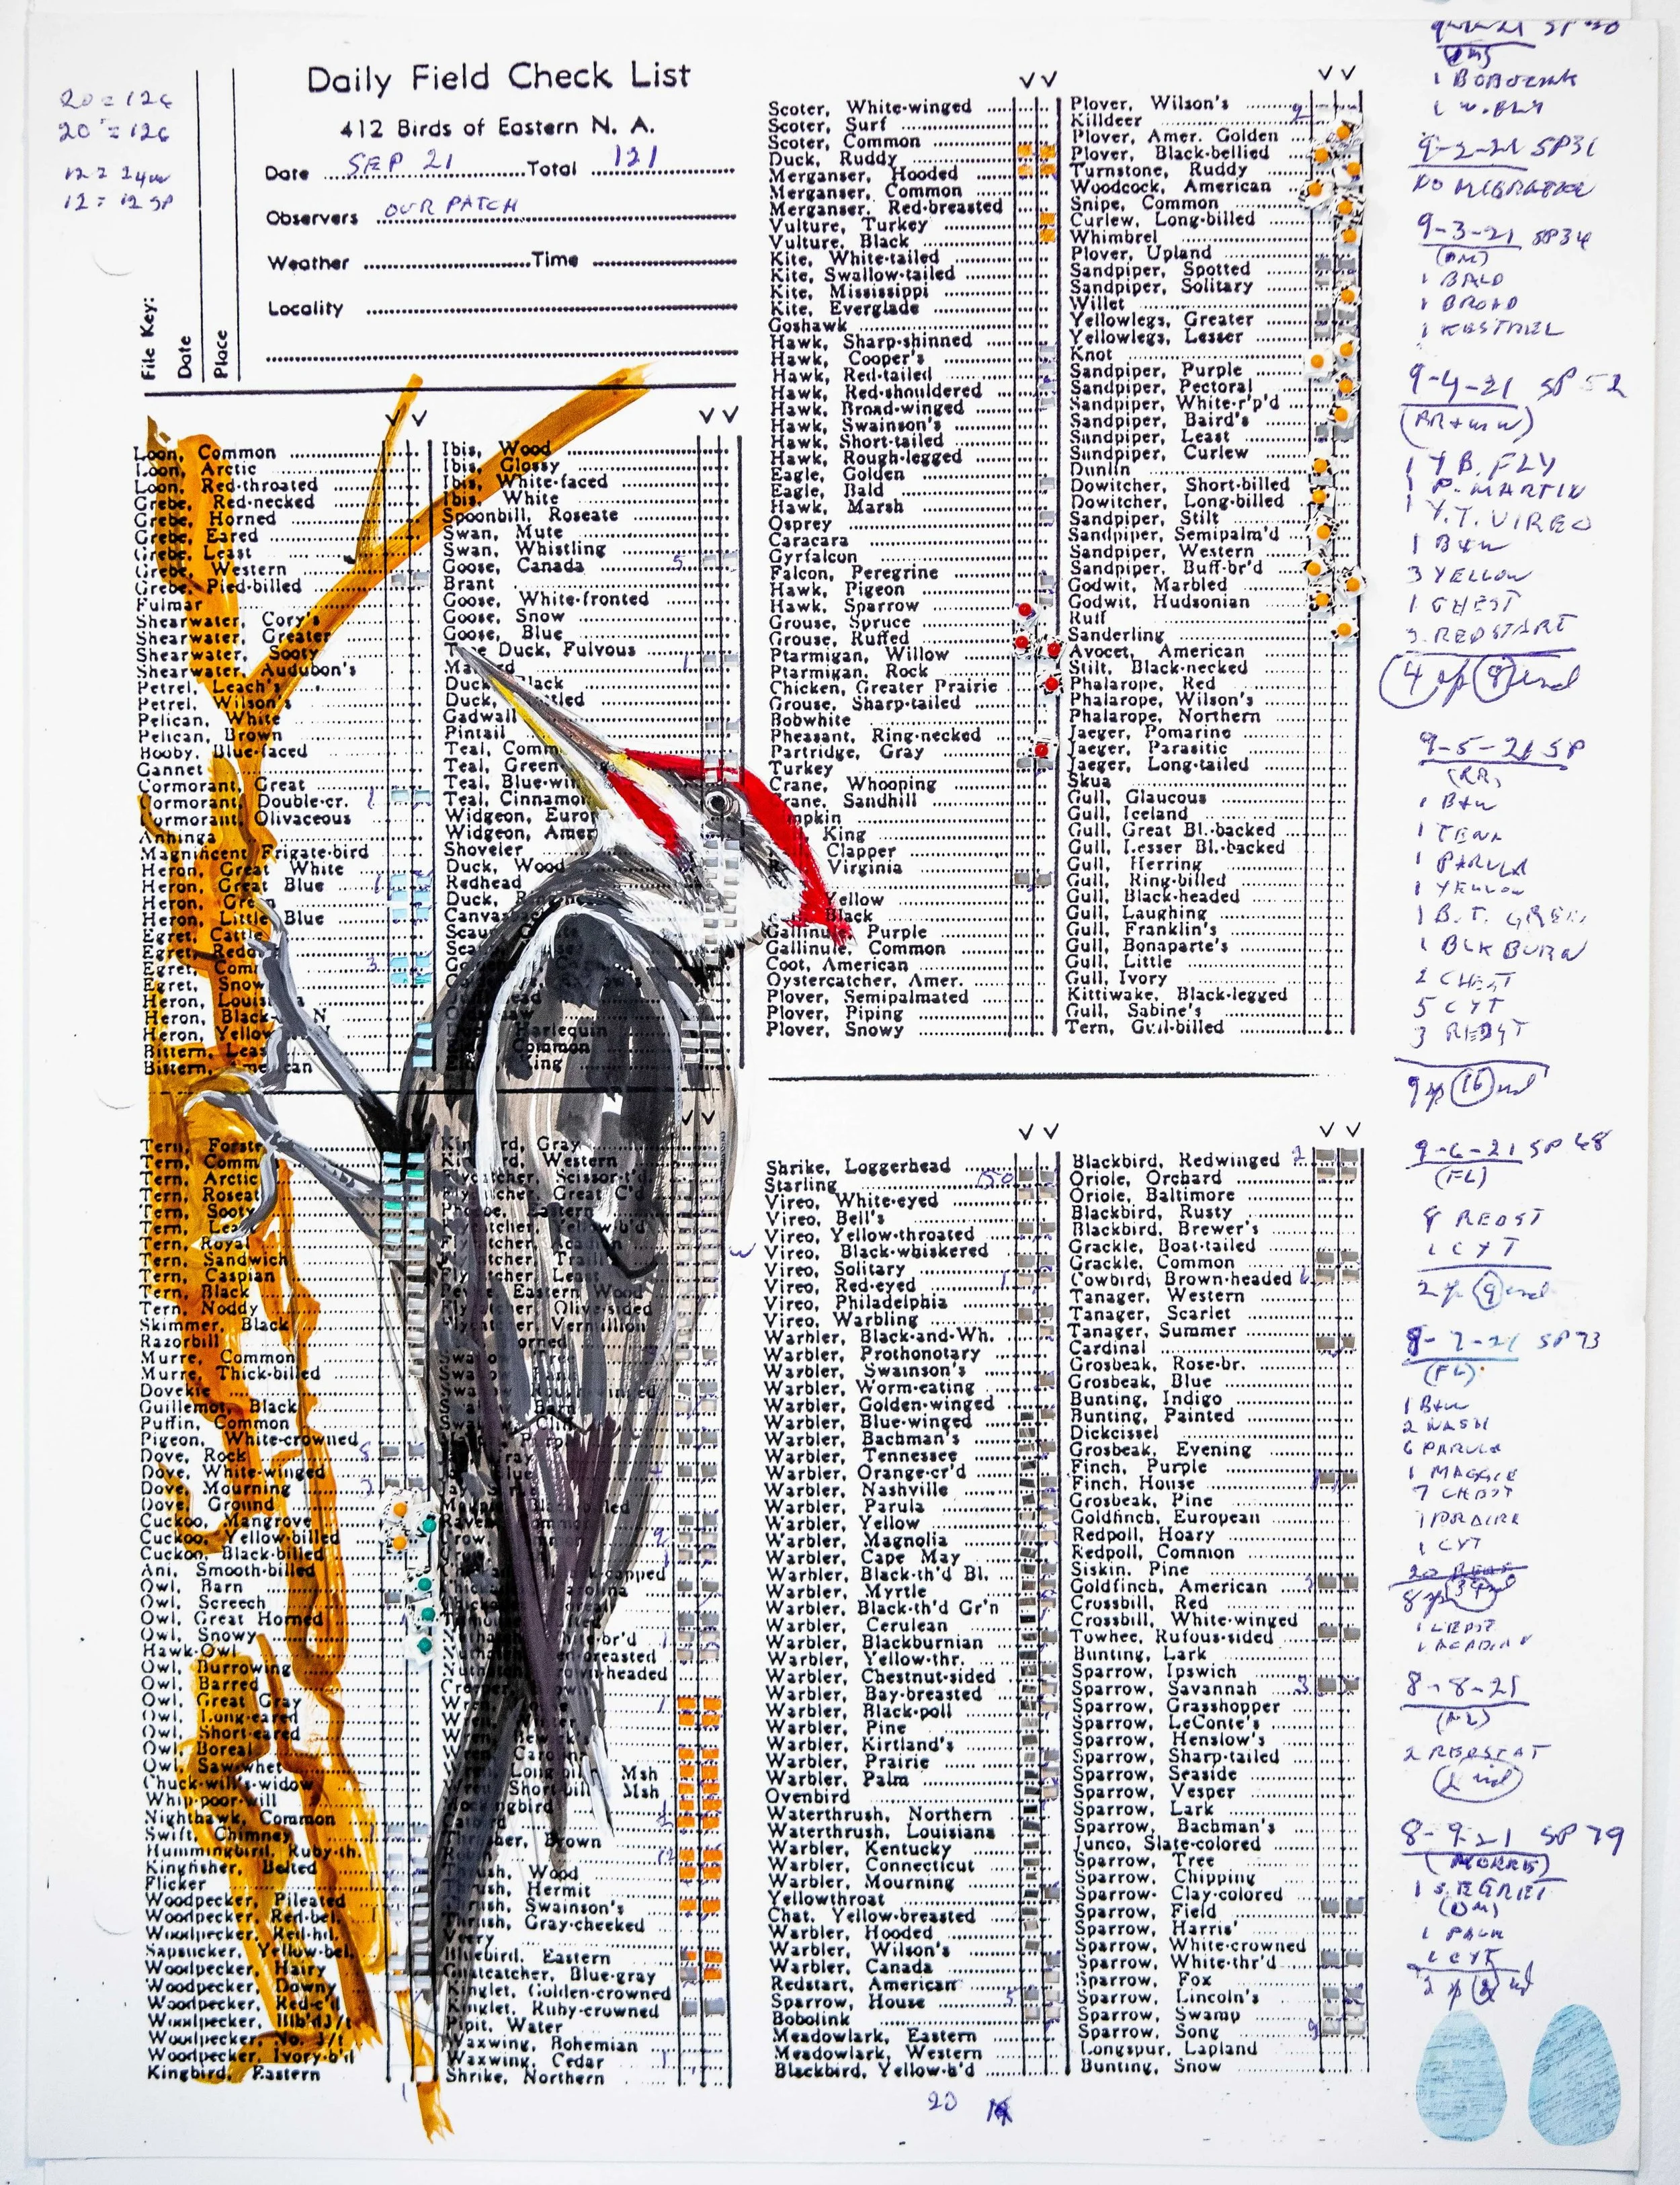 20 = 126
20 = 126
12 = 12 SP
Daily Field Check List
412 Birds of Eastern N. A.
Date SEP 21 Total 121
Observers OUR PATCH
Weather Time
Locality
File Key:
Date
Place
Loon, Common
Loon, Arctic
Loon, Red-throated
Grebe, Red-necked
Grebe, Horned
Grebe, Eared
Grebe, Least
Grebe, Western
Grebe, Pied-billed
Fulmar
Shearwater, Cory's
Shearwater, Greater
Shearwater, Sooty
Shearwater, Audubon's
Petrel, Leach's
Petrel, Wilson's
Pelican, White
Pelican, Brown
Booby, Blue-faced
Gannet
Cormorant, Great
Cormorant, Double-cr.
Cormorant, Olivaceous
Anhinga
Magnificent Frigate-bird
Heron, Great White
Heron, Great Blue
Heron, Green
Heron, Little Blue
Egret, Cattle
Egret,
Egret,
Egret, Snow
Heron,
Heron, Black- N
Heron, Yellow N
Bittern, Leas
Bittern, can
Ibis, Wood
Ibis, Glossy
Ibis, White-faced
Ibis, White
Spoonbill, Roseate
Swan, Mute
Swan, Whistling
Goose, Canada 5
Brant
Goose, White-fronted
Goose, Snow
Goose, Blue
Duck, Fulvous
Duck, Black
Duck,
Gadwall
Pintail
Teal, Comm
Teal, Green
Teal, Blue-wi
Teal, Cinnamo
Widgeon, Euro
Widgeon, Amer
Shoveler
Duck, Wood
Redhead
Duck,
Canvas
Harlequin
Common
King
Tern, Forste
Tern, Comm
Tern, Arctic
Tern, Roseat
Tern, Sooty
Tern, Lea
Tern, Royal
Tern, Sandwich
Tern, Caspian
Tern, Black
Tern, Noddy
Skimmer, Black
Razorbill
Murre, Common
Murre, Thick-billed
Dovekie
Guillemot, Black
Puffin, Common
Pigeon, White-crowned
Dove, Rock
Dove, White-winged
Dove, Mourning
Dove, Ground
Cuckoo, Mangrove
Cuckoo, Yellow-billed
Cuckoo, Black-billed
Ani, Smooth-billed
Owl, Barn
Owl, Screech
Owl, Great Horned
Owl, Snowy
Hawk-Owl
Owl, Burrowing
Owl, Barred
Owl, Great Gray
Owl, Long-eared
Owl, Short-eared
Owl, Boreal
Owl, Saw-whet
Chuck-will's-widow
Whip-poor-will
Nighthawk, Common
Swift, Chimney
Hummingbird, Ruby-th.
Kingfisher, Belted
Flicker
Woodpecker, Pileated
Woodpecker, Red-bel.
Woodpecker, Red-hd.
Sapsucker, Yellow-bel.
Woodpecker, Hairy
Woodpecker, Downy
Woodpecker, Red-c'd
Woodpecker,
Woodpecker,
Woodpecker, Ivory-b'd
Kingbird, Eastern
Gray
Western
Scissor-t'd.
Great C'd
Eastern
Yellow-b'd
Least
Eastern Wood
Olive-sided
Vermillion
Horned
Tree
Barn
Cliff
Purple
Wren,
Long-bil Msh
Short-bill Msh
Mockingbird
Catbird
Thrasher, Brown
Thrush, Wood
Thrush, Hermit
Thrush, Swainson's
Thrush, Gray-cheeked
Veery
Bluebird, Eastern
Gnatcatcher, Blue-gray
Kinglet, Golden-crowned
Kinglet, Ruby-crowned
Pipit, Water
Waxwing, Bohemian
Waxwing, Cedar
Shrike, Northern
Scoter, White-winged
Scoter, Surf
Scoter, Common
Duck, Ruddy
Merganser, Hooded
Merganser, Common
Merganser, Red-breasted
Vulture, Turkey
Vulture, Black
Kite, White-tailed
Kite, Swallow-tailed
Kite, Mississippi
Kite, Everglade
Goshawk
Hawk, Sharp-shinned
Hawk, Cooper's
Hawk, Red-tailed
Hawk, Red-shouldered
Hawk, Broad-winged
Hawk, Swainson's
Hawk, Short-tailed
Hawk, Rough-legged
Eagle, Golden
Eagle, Bald
Hawk, Marsh
Osprey
Caracara
Gyrfalcon
Falcon, Peregrine
Hawk, Pigeon
Hawk, Sparrow
Grouse, Spruce
Grouse, Ruffed
Ptarmigan, Willow
Ptarmigan, Rock
Chicken, Greater Prairie
Grouse, Sharp-tailed
Bobwhite
Pheasant, Ring-necked
Partridge, Gray
Turkey
Crane, Whooping
Crane, Sandhill
mpkin
King
Clapper
Virginia
Yellow
Black
Gallinule, Purple
Gallinule, Common
Coot, American
Oystercatcher, Amer.
Plover, Semipalmated
Plover, Piping
Plover, Snowy
Plover, Wilson's
Killdeer 2
Plover, Amer. Golden
Plover, Black-bellied
Turnstone, Ruddy
Woodcock, American
Snipe, Common
Curlew, Long-billed
Whimbrel
Plover, Upland
Sandpiper, Spotted
Sandpiper, Solitary
Willet
Yellowlegs, Greater
Yellowlegs, Lesser
Knot
Sandpiper, Purple
Sandpiper, Pectoral
Sandpiper, White-r'p'd
Sandpiper, Baird's
Sandpiper, Least
Sandpiper, Curlew
Dunlin
Dowitcher, Short-billed
Dowitcher, Long-billed
Sandpiper, Stilt
Sandpiper, Semipalm'd
Sandpiper, Western
Sandpiper, Buff-br'd
Godwit, Marbled
Godwit, Hudsonian
Ruff
Sanderling
Avocet, American
Stilt, Black-necked
Phalarope, Red
Phalarope, Wilson's
Phalarope, Northern
Jaeger, Pomarine
Jaeger, Parasitic
Jaeger, Long-tailed
Skua
Gull, Glaucous
Gull, Iceland
Gull, Great Bl.-backed
Gull, Lesser Bl.-backed
Gull, Herring
Gull, Ring-billed
Gull, Black-headed
Gull, Laughing
Gull, Franklin's
Gull, Bonaparte's
Gull, Little
Gull, Ivory
Kittiwake, Black-legged
Gull, Sabine's
Tern, Gull-billed
Shrike, Loggerhead
Starling 150
Vireo, White-eyed
Vireo, Bell's
Vireo, Yellow-throated
Vireo, Black-whiskered
Vireo, Solitary
Vireo, Red-eyed 1
Vireo, Philadelphia
Vireo, Warbling
Warbler, Black-and-Wh.
Warbler, Prothonotary
Warbler, Swainson's
Warbler, Worm-eating
Warbler, Golden-winged
Warbler, Blue-winged
Warbler, Bachman's
Warbler, Tennessee
Warbler, Orange-cr'd
Warbler, Nashville
Warbler, Parula
Warbler, Yellow
Warbler, Magnolia
Warbler, Cape May
Warbler, Black-th'd Bl.
Warbler, Myrtle
Warbler, Black-th'd Gr'n
Warbler, Cerulean
Warbler, Blackburnian
Warbler, Yellow-thr.
Warbler, Chestnut-sided
Warbler, Bay-breasted
Warbler, Black-poll
Warbler, Pine
Warbler, Kirtland's
Warbler, Prairie
Warbler, Palm
Ovenbird
Waterthrush, Northern
Waterthrush, Louisiana
Warbler, Kentucky
Warbler, Connecticut
Warbler, Mourning
Yellowthroat
Chat, Yellow-breasted
Warbler, Hooded
Warbler, Wilson's
Warbler, Canada
Redstart, American
Sparrow, House 5
Bobolink
Meadowlark, Eastern
Meadowlark, Western
Blackbird, Yellow-h'd
20
Blackbird, Redwinged 2
Oriole, Orchard
Oriole, Baltimore
Blackbird, Rusty
Blackbird, Brewer's
Grackle, Boat-tailed
Grackle, Common
Cowbird, Brown-headed 6
Tanager, Western
Tanager, Scarlet
Tanager, Summer
Cardinal
Grosbeak, Rose-br.
Grosbeak, Blue
Bunting, Indigo
Bunting, Painted
Dickcissel
Grosbeak, Evening
Finch, Purple
Finch, House
Grosbeak, Pine
Goldfinch, European
Redpoll, Hoary
Redpoll, Common
Siskin, Pine
Goldfinch, American
Crossbill, Red
Crossbill, White-winged
Towhee, Rufous-sided
Bunting, Lark
Sparrow, Ipswich
Sparrow, Savannah 3
Sparrow, Grasshopper
Sparrow, LeConte's
Sparrow, Henslow's
Sparrow, Sharp-tailed
Sparrow, Seaside
Sparrow, Vesper
Sparrow, Lark
Sparrow, Bachman's
Junco, Slate-colored
Sparrow, Tree
Sparrow, Chipping
Sparrow- Clay-colored
Sparrow, Field
Sparrow, Harris'
Sparrow, White-crowned
Sparrow, White-thr'd
Sparrow, Fox
Sparrow, Lincoln's
Sparrow, Swamp
Sparrow, Song 9
Longspur, Lapland
Bunting, Snow
1 W. FLY
9-2-21 SP31
NO MIGRATION
9-3-21 SP34
1 BALD
1 BROAD
1 KESTREL
9-4-21 SP 52
1 Y.B. FLY
1 P. MARTIN
1 Y.T. VIREO
1 B+W
3 YELLOW
1 CHEST
3 REDSTART
4 sp 8 ind
9-5-21 SP
(RR)
1 B+W
1 TENN
1 PARULA
1 YELLOW
1 B.T. GREEN
1 BLK BURN
2 CHEST
5 CYT
3 REDST
9 sp 16 ind
9-6-21 SP 68
(FL)
8 REDST
1 CYT
2 sp 9 ind
8-7-21 SP 73
(FL)
1 B+W
2 NASH
6 PARULA
1 MAGGIE
7 CHEST
1 PRAIRE
1 CYT
8-8-21
(FL)
2 REDSTAT
2 ind
8-9-21 SP 79
(MORRIS)
1 S. EGRET
(DM)
1 PALM
1 CYT
2 sp 2 ind